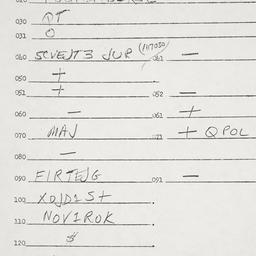 030 QT
031 O
040 SCVEJT3 JUR (117050) 041 —
050 +
051 + 052 —
060 — 061 +
070 MAJ 071 + QPOL
080 —
090 FIRTEJG 091 —
100 XOJD1St
110 NOV1ROK
120 $